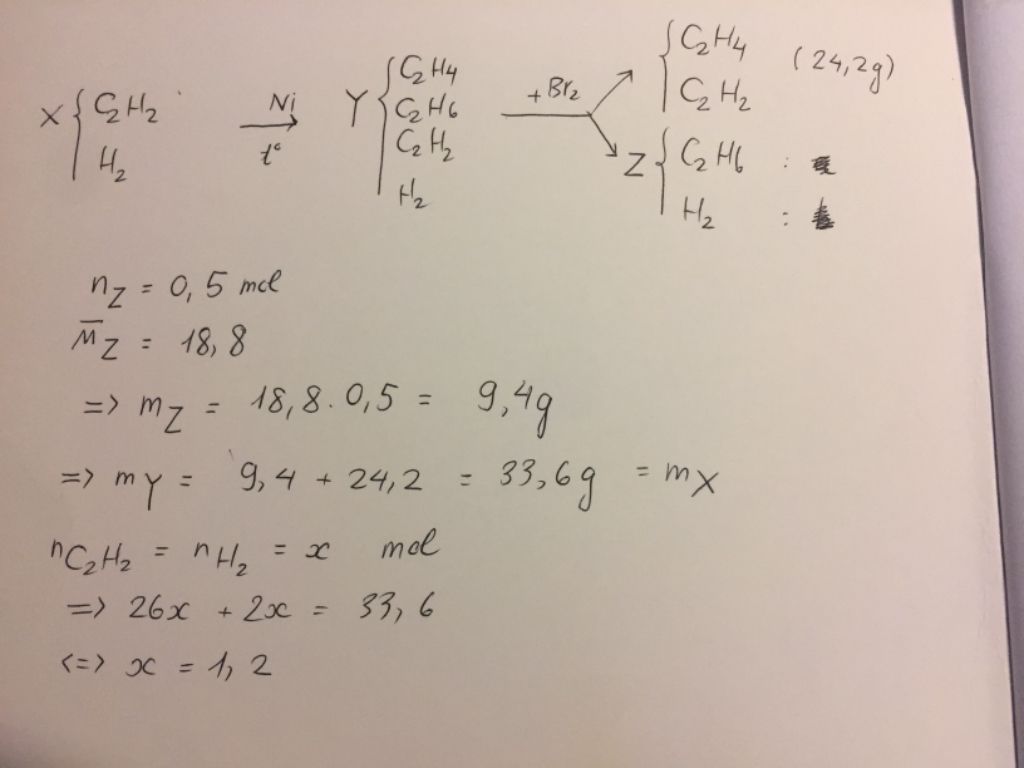 X { C2H2 H2 Ni t° → Y { C2H4 C2H6 C2H2 H2 + Br2 → { C2H4 C2H2 (24,2g)
Z { C2H6 : H2 :
nZ = 0,5 mol
M̅Z = 18,8
=> mZ = 18,8 . 0,5 = 9,4g
=> mY = 9,4 + 24,2 = 33,6g = mX
nC2H2 = nH2 = x mol
=> 26x + 2x = 33,6
<=> x = 1,2